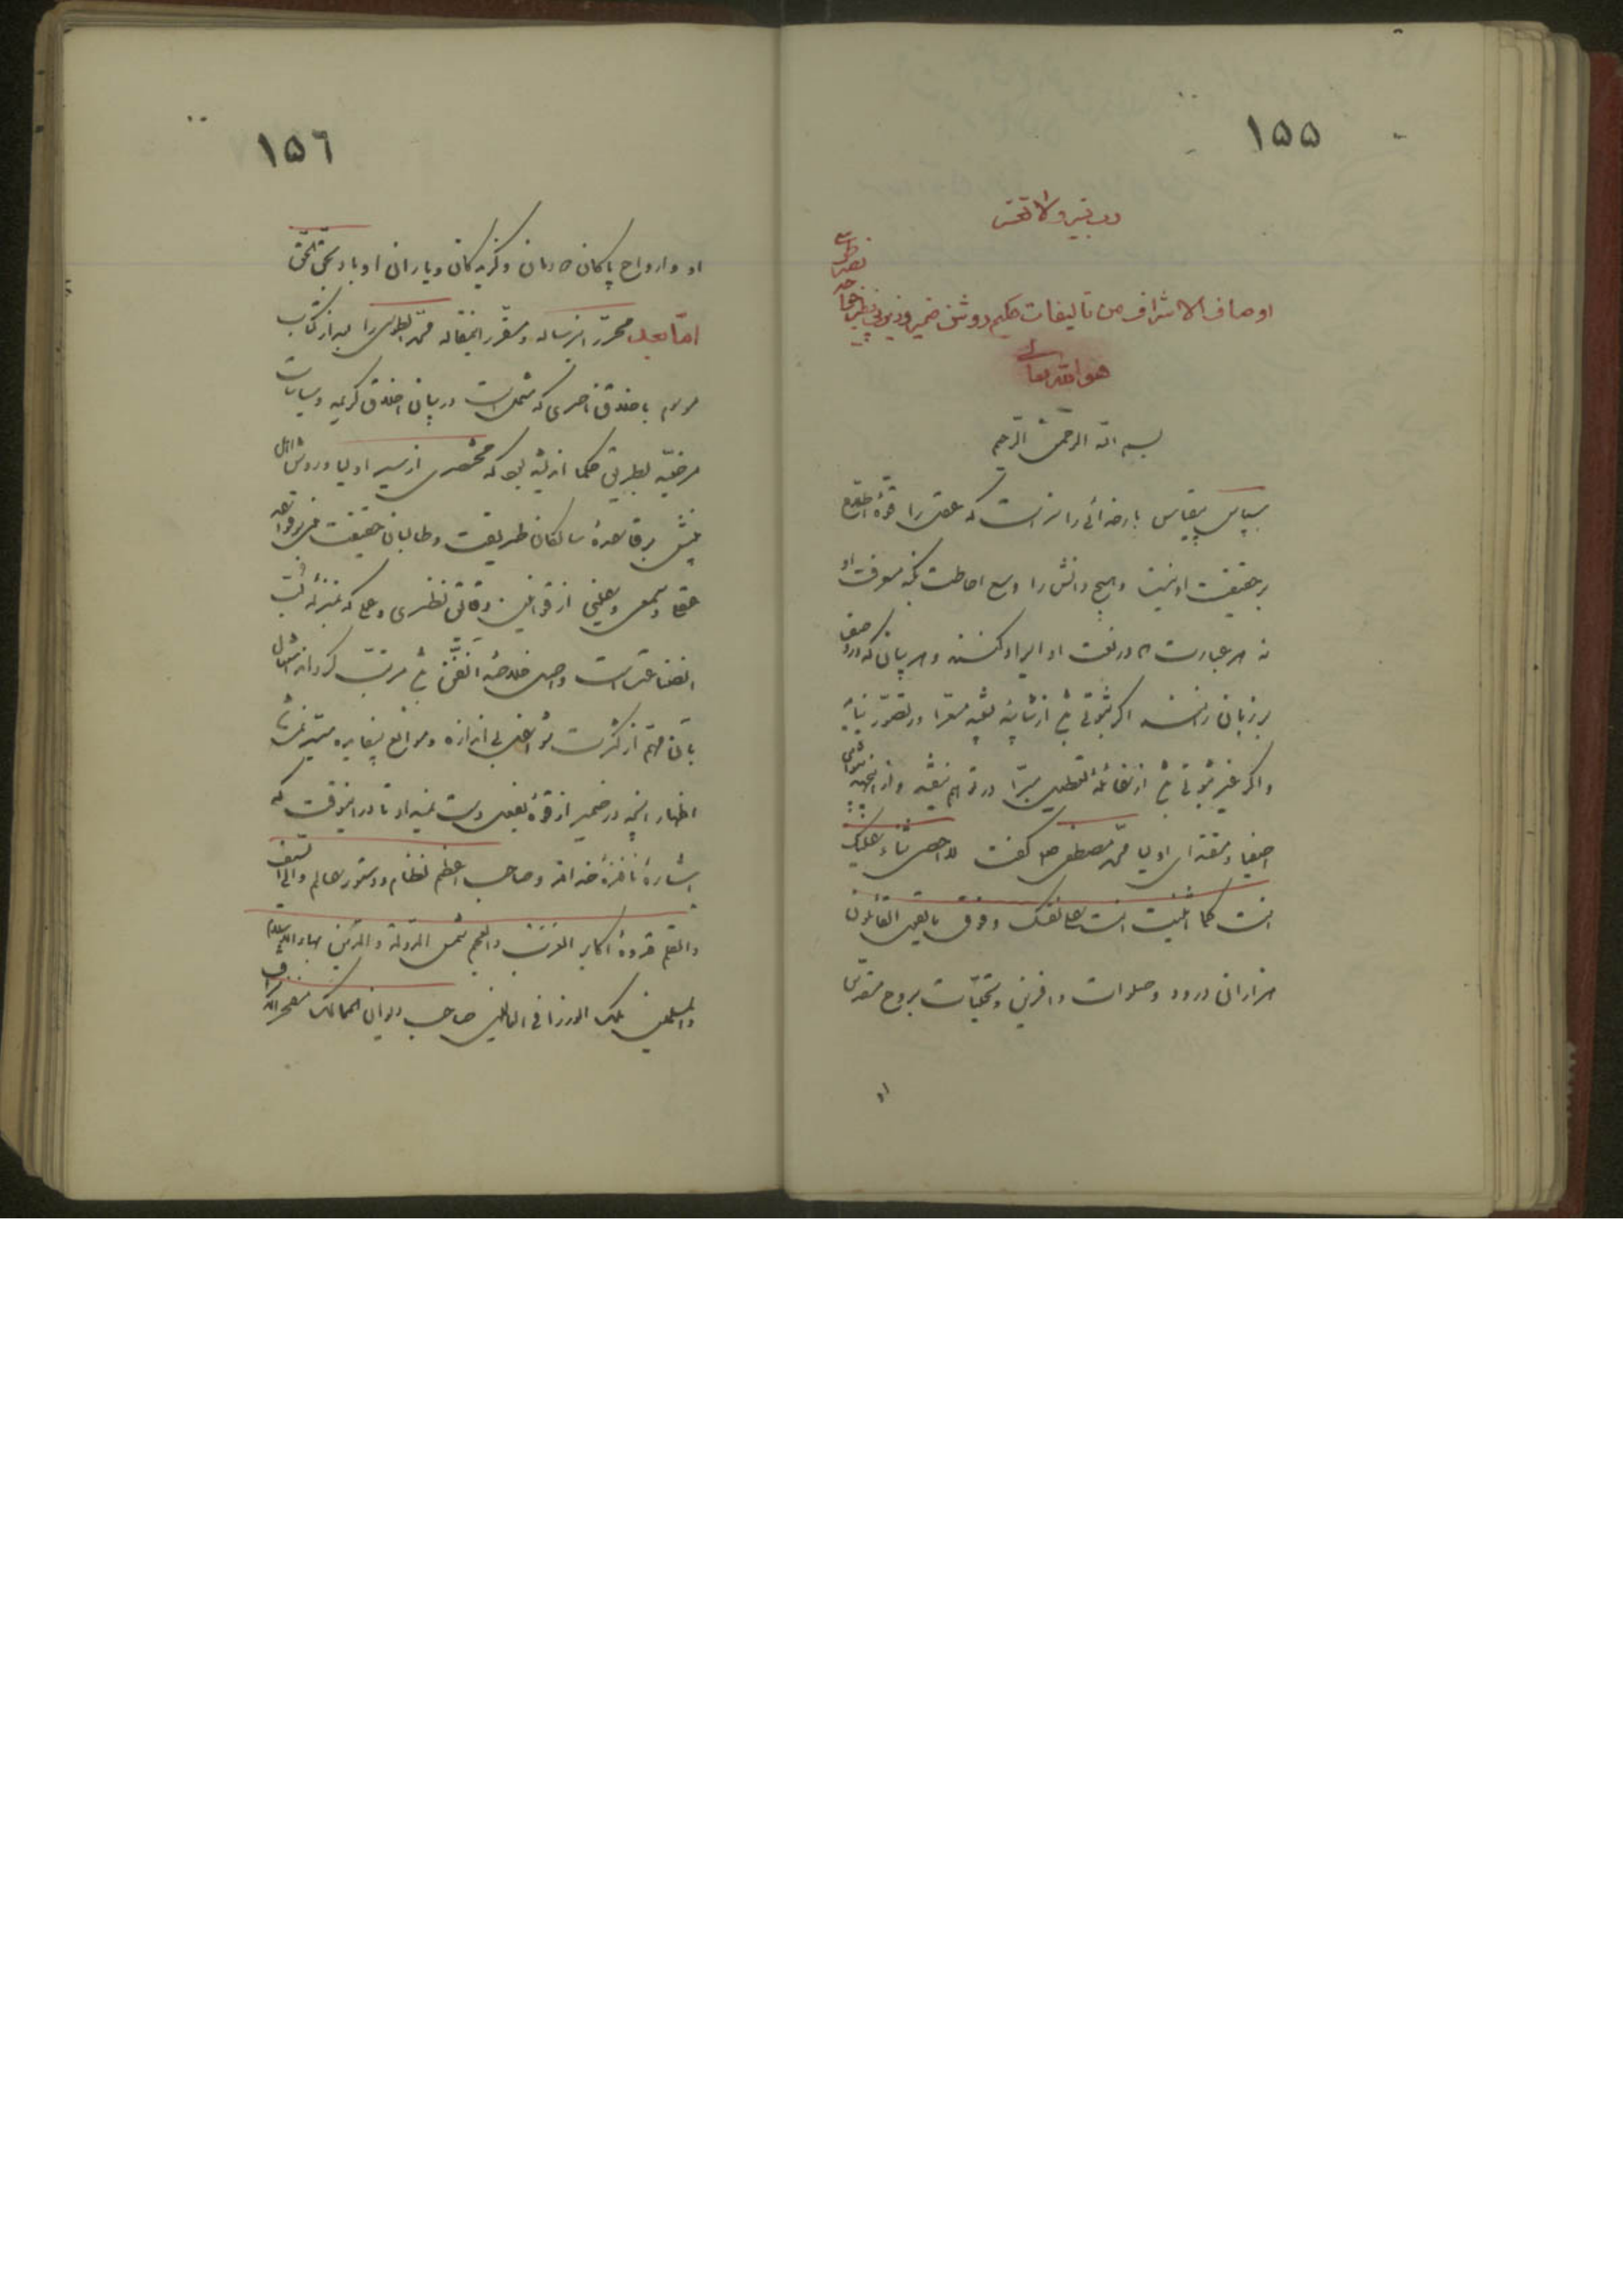 ۱۵۵
رب یسر ولا تعسر
اوصاف الاشراف من تالیفات حکیم روشن ضمیر وزیر بی نظیر خواجه نصیر طوسی
هو الله تعالی
بسم الله الرحمن الرحیم
سپاس بیقیاس بارخدائی را سزاست که هیچ عقل را قوة اطلاع
بر حقیقت او نیست و هیچ دانش را وسع احاطت بکنه معرفت او
نه هر عبارت که در نعت او ایراد کنند و هر بیان که در وصف
بر زبان رانند اگر ثبوتی باشد از شائبه تشبیه معرا در تصور نیاید
و اگر غیر ثبوتی باشد از غائله تعطیل مبرا در توهم نیفتد و از اینجهة پیشوای
اصفیا و مقتدای اولیا محمد مصطفی گفت لا احصی ثناء علیک
انت کما اثنیت علی نفسک و فوق ما یقول القائلون
هزاران درود و صلوات و افرین و تحیّات بروح مقدّس
او
۱۵٦
او و ارواح پاکان خاندان و گزیدگان و یاران او باد بحق الحق
امّا بعد محرّر این رساله و مقرّر اینمقاله محمد الطوسی را بعد از کتاب
موسوم باخلاق ناصری که مشتمل است در بیان اخلاق کریمه و سیاسات
مرضیّه بطریق حکما اندیشه بود که مختصری از سیر اولیا و روش اهل
بینش بر قاعدهٔ سالکان طریقت و طالبان حقیقت مبنی بر قواعد
عقلی و سمعی و منبی از قوانین دقائق نظری و عملی که بمنزله لب
انصناعت است و اصل خلاصه انفن باشد مرتب گرداند اشتغال
بان مهم از کثرت شواغل بی اندازه و موانع بیفایده میسر نمیشد
اظهار انچه در ضمیر از قوة بفعل دست نمیداد تا در اینوقت که
اشارهٔ نافذهٔ خداوند و صاحب اعظم نظام و دستور عالم والی السیف
والقلم قدوة اکابر العرب والعجم شمس الدولة والدین بهاء الاسلام
والمسلمین ملک الوزرا فی العالمین صاحب دیوان الممالک مفخر الاشراف